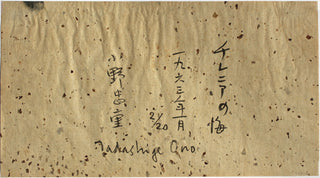 チレニアの海
一九六三年一月
2/20
小野忠重
Tadashige Ono